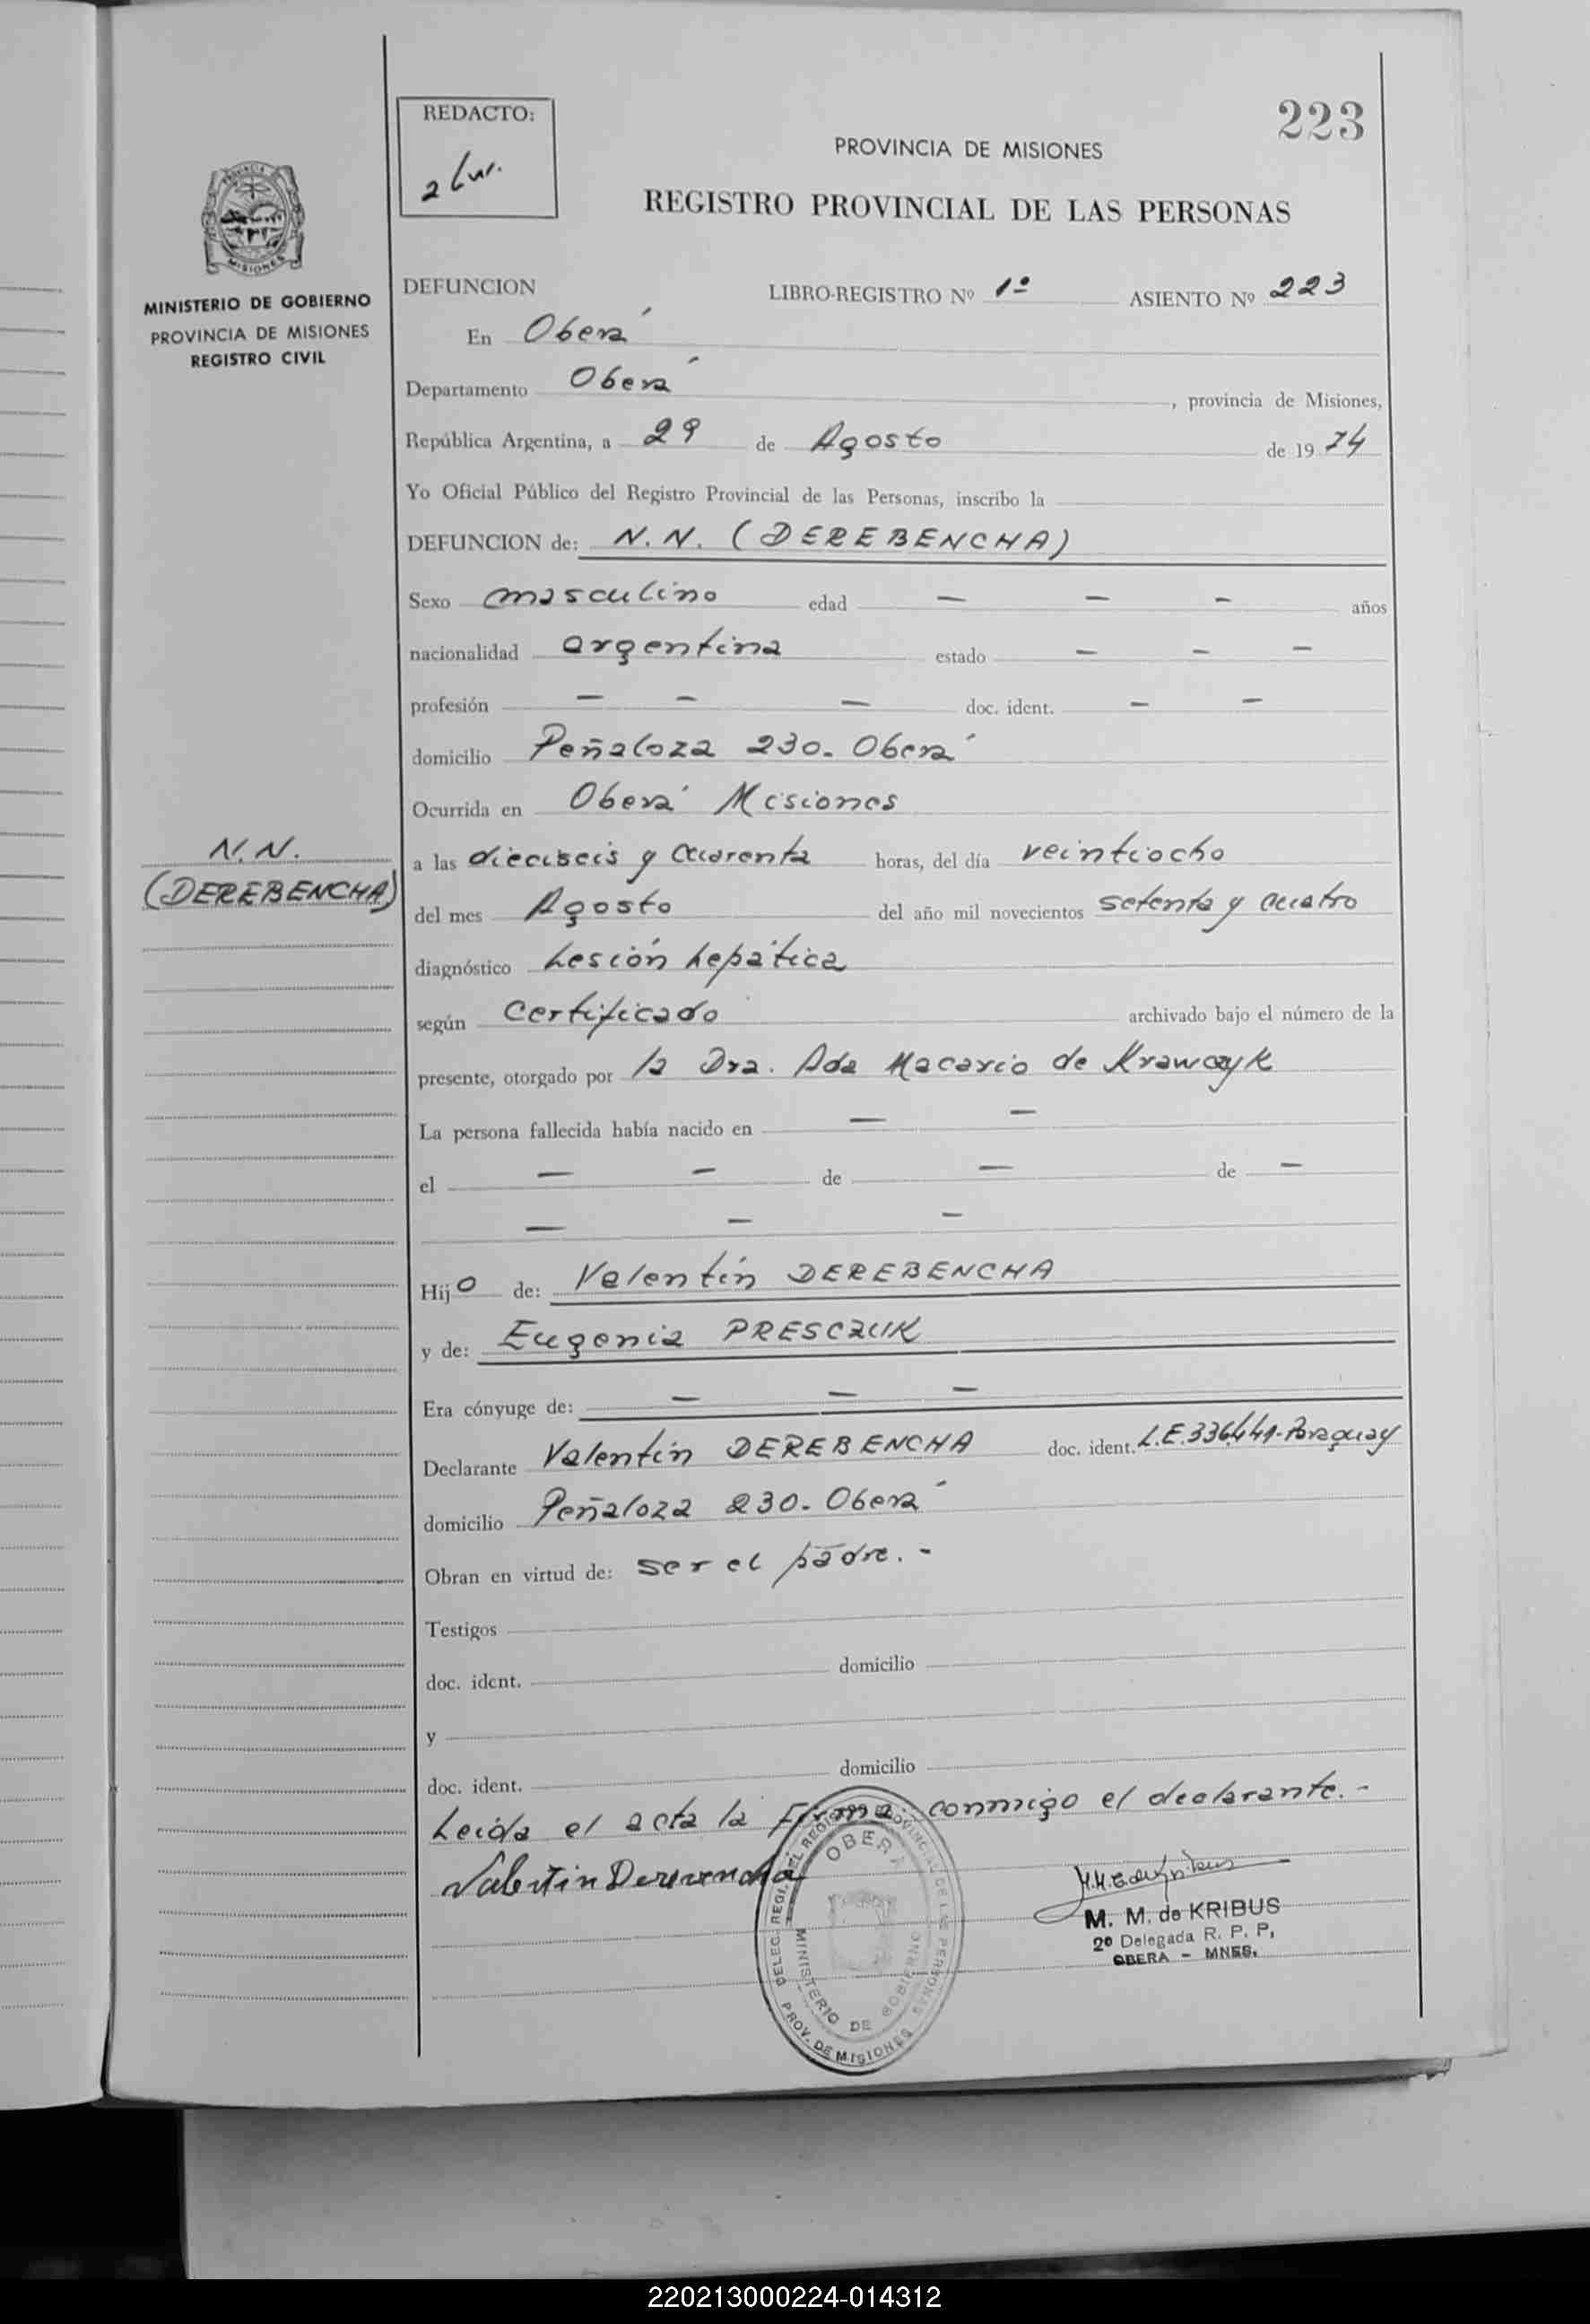 REDACTO:
223
PROVINCIA DE MISIONES
REGISTRO PROVINCIAL DE LAS PERSONAS
MISIONES
MINISTERIO DE GOBIERNO
PROVINCIA DE MISIONES
REGISTRO CIVIL
DEFUNCION LIBRO-REGISTRO Nº 1º ASIENTO Nº 223
En Oberá
Departamento Oberá, provincia de Misiones,
República Argentina, a 29 de Agosto de 1974
Yo Oficial Público del Registro Provincial de las Personas, inscribo la
DEFUNCION de: N. N. (DEREBENCHA)
Sexo masculino edad — — — años
nacionalidad argentina estado — — —
profesión — — — doc. ident. — —
domicilio Peñaloza 230. Oberá
Ocurrida en Oberá Misiones
N. N.
(DEREBENCHA)
a las dieciseis y cuarenta horas, del día veintiocho
del mes Agosto del año mil novecientos setenta y cuatro
diagnóstico Lesión hepática
según Certificado archivado bajo el número de la
presente, otorgado por la Dra. Ada Macario de Krawczyk
La persona fallecida había nacido en — —
el — — de — de —
— — —
Hijo de: Valentín DEREBENCHA
y de: Eugenia PRESCZUK
Era cónyuge de: — — —
Declarante Valentín DEREBENCHA doc. ident. L.E. 336.441-Paraguay
domicilio Peñaloza 230. Oberá
Obran en virtud de: ser el padre. -
Testigos
doc. ident. domicilio
y
doc. ident. domicilio
Leída el acta la firma conmigo el declarante. -
Valentin Derevencha
OBERA
MINISTERIO DE GOBIERNO
PROV. DE MISIONES
M. M. de KRIBUS
2º Delegada R. P. P,
OBERA - MNES.
220213000224-014312